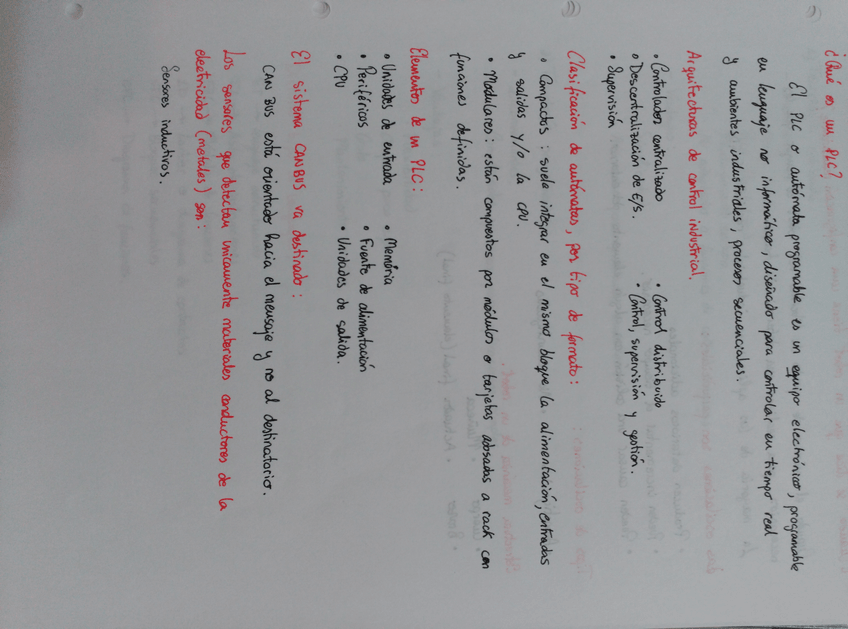 ¿Qué es un PLC?
El PLC o autómata programable es un equipo electrónico, programable
en lenguaje no informático, diseñado para controlar en tiempo real
y ambientes industriales, procesos secuenciales.
Arquitecturas de control industrial.
• Controlador centralizado • Control distribuido
• Descentralización de E/s. • Control, supervisión y gestión.
• Supervisión
Clasificación de autómatas, por tipo de formato:
• Compactos: suele integrar en el mismo bloque la alimentación, entradas
y salidas y/o la CPU.
• Modulares: están compuestos por módulos o tarjetas adosadas a rack con
funciones definidas.
Elementos de un PLC:
• Unidades de entrada • Memória
• Periféricos • Fuente de alimentación
• CPU • Unidades de salida.
El sistema CAN BUS va destinado:
CAN BUS está orientado hacia el mensaje y no al destinatario.
Los sensores que detectan unicamente materiales conductores de la
electricidad (metales) son:
Sensores inductivos.